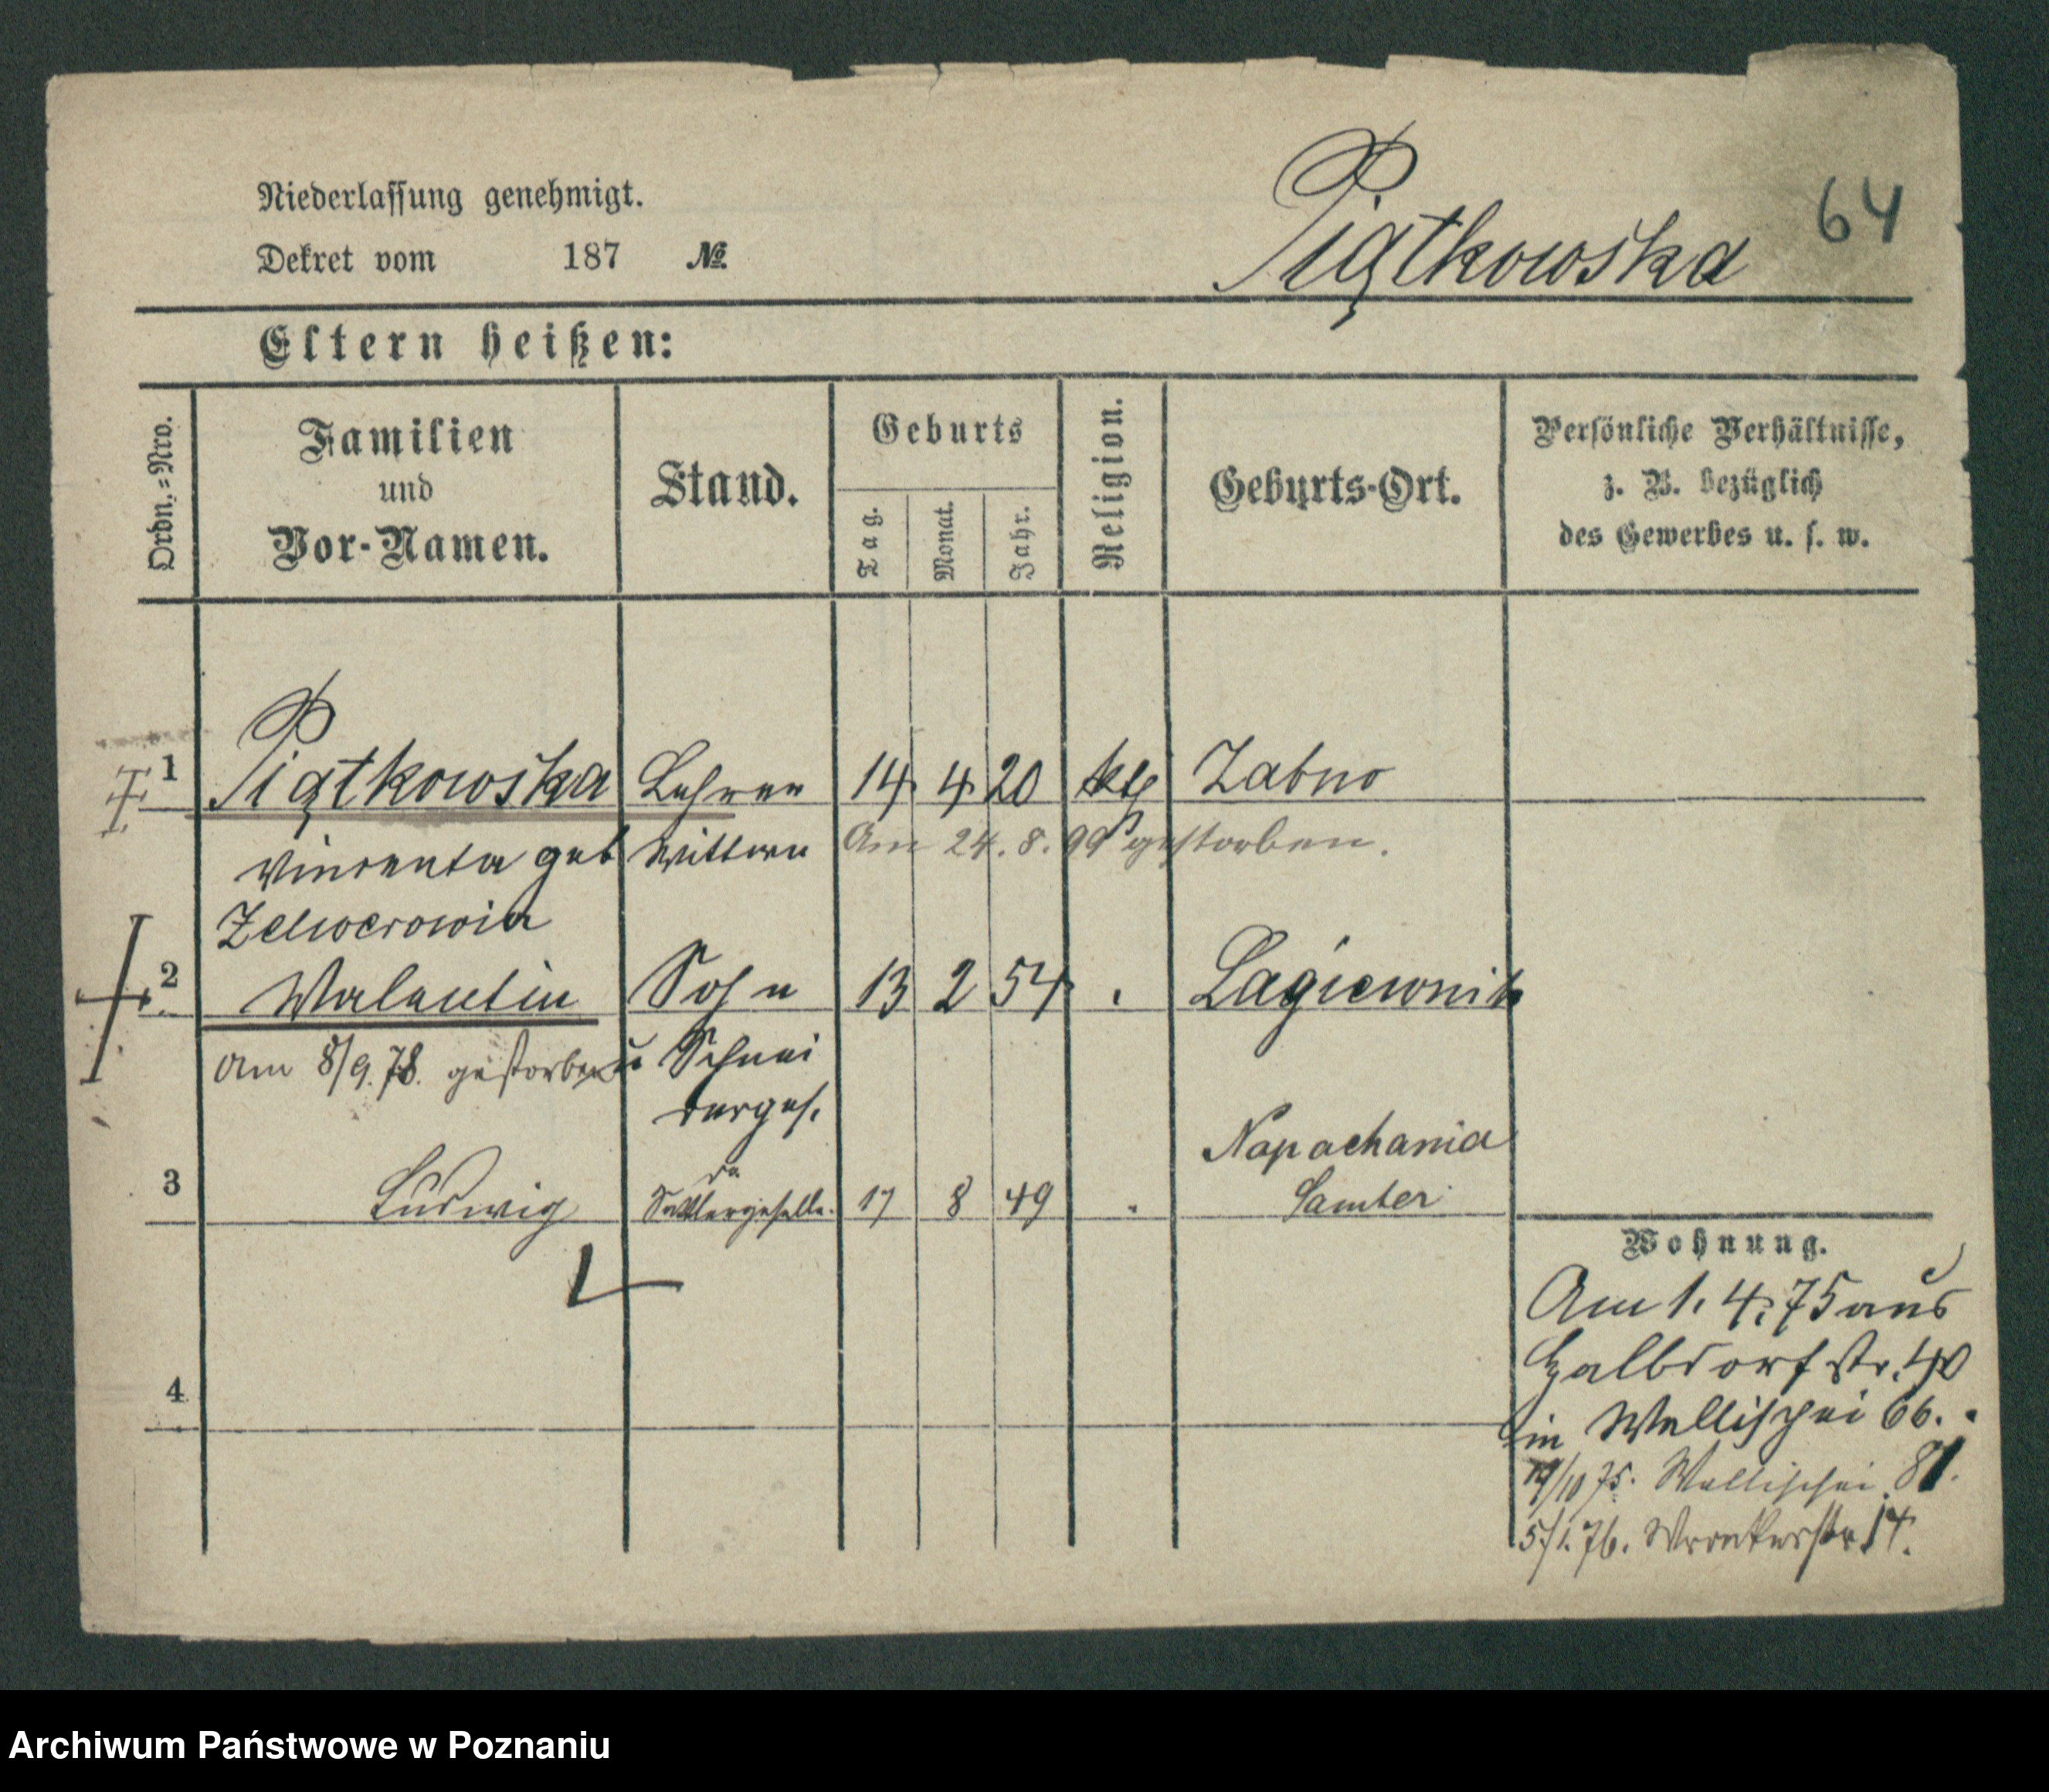 Niederlassung genehmigt.
Dekret vom 187 №
Piątkowska 64
Eltern heißen:
Ordn.-Nro.
Familien
und
Vor-Namen.
Stand.
Geburts
Tag.
Monat.
Jahr.
Religion.
Geburts-Ort.
Persönliche Verhältnisse,
z. B. bezüglich
des Gewerbes u. s. w.
1 Piątkowska Lehrer 14 4 20 kth Zabno
Vincenta geb Wittwe Am 24.8.99 gestorben.
2 Walentin Sohn 13 2 54 Lagiewnik
Am 8/9.78. gestorben
u Schnei
derges.
Napachania
3 Ludwig Sattlergeselle. 17 8 49 Samter
Wohnung.
Am 1.4.75 aus
Halbdorfstr. 40
in Wallischei 66.
/10 75. Wallischei 81.
5/1.76. Wronkerstr 14.
4
Archiwum Państwowe w Poznaniu